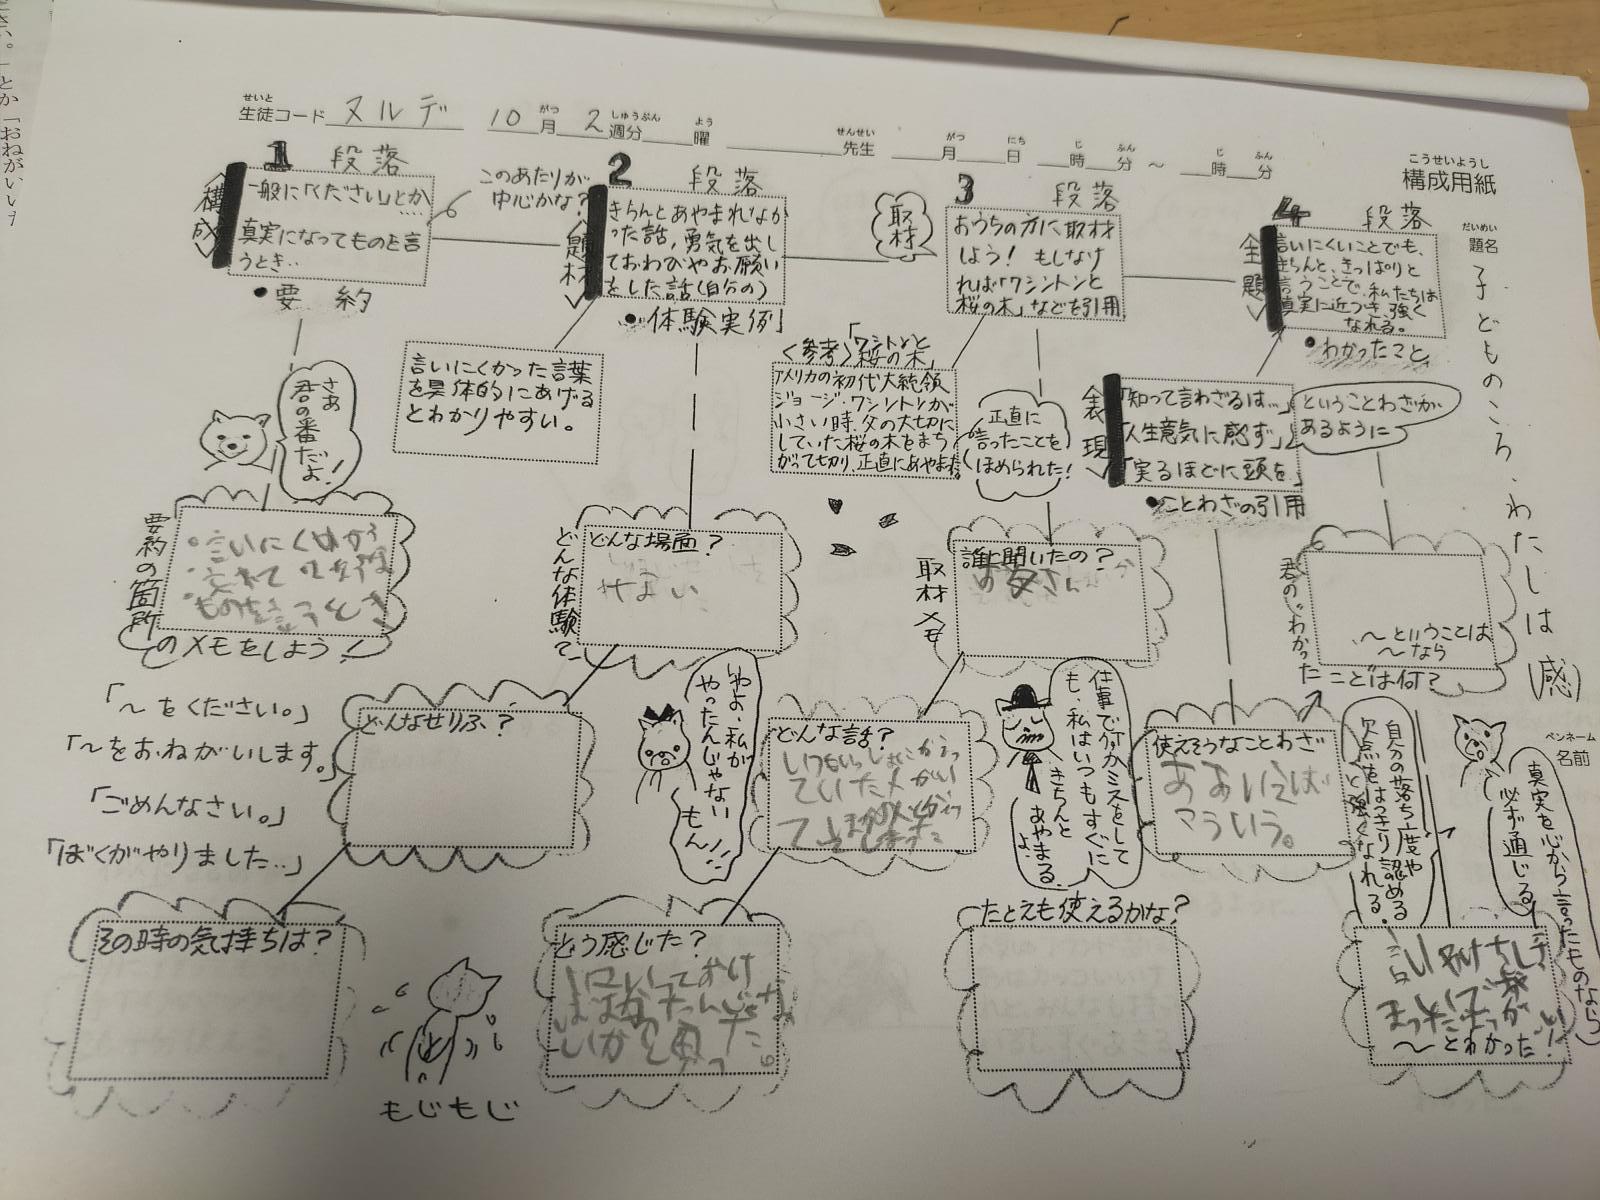 さい。」とか「おねがいしす
生徒コード ヌルデ 10月2週分 曜 先生 月 日 時 分 ～ 時 分
せいと がつ しゅうぶん よう せんせい がつ にち じ ふん じ ふん
こうせいようし
構成用紙
だいめい
題名
子どものころ、わたしは(感)
ペンネーム
名前
1 段落
構成
一般に「ください」とか
‥‥
真実になってものを言
うとき‥
•要約
このあたりが
中心かな?
さあ
君の番だよ!
要約の箇所
のメモをしよう!
言いにくい
ものを言うとき
「～をください。」
「～をおねがいします。」
「ごめんなさい。」
「ぼくがやりました‥」
2 段落
題材
きちんとあやまれなか
った話,勇気を出し
ておわびやお願い
をした話(自分の)
•体験実例
言いにくかった言葉
を具体的にあげる
とわかりやすい。
どんな体験?
どんな場面?
せまい
どんなせりふ?
その時の気持ちは?
もじもじ
いやよ、私が
やったんじゃない
もん!!
3 段落
取材
おうちの方に取材
しよう! もしなけ
れば「ワシントンと
桜の木」などを引用
<参考>「ワシントンと
桜の木」
アメリカの初代大統領
ジョージ・ワシントンが
小さい時、父の大切に
していた桜の木をまち
がって切り、正直にあやまった。
正直に
言ったことを
ほめられた!
取材メモ
誰に聞いたの?
お父さん
どんな話?
ていた
どう感じた?
と思った。
仕事で何かミスをして
も、私はいつもすぐに
きちんと
あやまる
よ。
たとえも使えるかな?
4 段落
主題
言いにくいことでも、
きちんと、きっぱりと
言うことで、私たちは
真実に近づき、強く
なれる。
•わかったこと
表現
「知って言わざるは…」
「人生意気に感ず」
「実るほどに頭を」
•ことわざの引用
ということわざが
あるように
君の“わかった
ことは何?
～ということは
～なら
使えそうなことわざ
ああいえば
こういう。
自分の落ち度や
欠点をはっきり認める
と強くなれる。
真実を心から言ったものなら
必ず通じる
～とわかった!